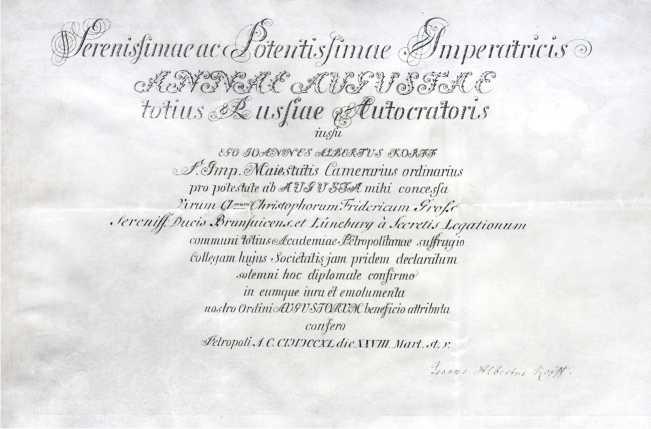 Serenissimae ac Potentissimae Imperatricis
ANNAE AUGUSTAE
totius Russiae Autocratoris
iussu
EGO IOANNES ALBERTUS KORFF
S. Imp. Maiestatis Camerarius ordinarius
pro potestate ab AUGUSTA mihi concessa
Virum Christophorum Fridericum Groß
Sereniss. Ducis Brunsuicens. et Lüneburg à Secretis Legationum
communi totius Academiae Petropolitanae suffragio
Collegam hujus Societatis jam pridem declaratum
solemni hoc diplomate confirmo
in eumque iura et emolumenta
nostro Ordini AUGUSTORUM beneficio attributa
confero
Petropoli A.C. die XXVIII. Mart. st. v.
Ioannes Albertus Korff.